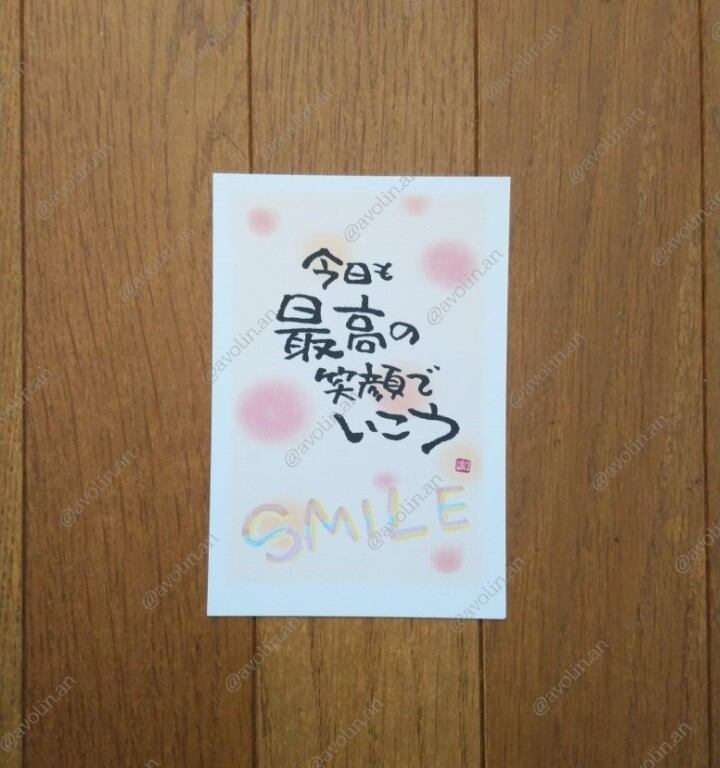 今日も
最高の
笑顔で
いこう
SMILE
@avolin.an